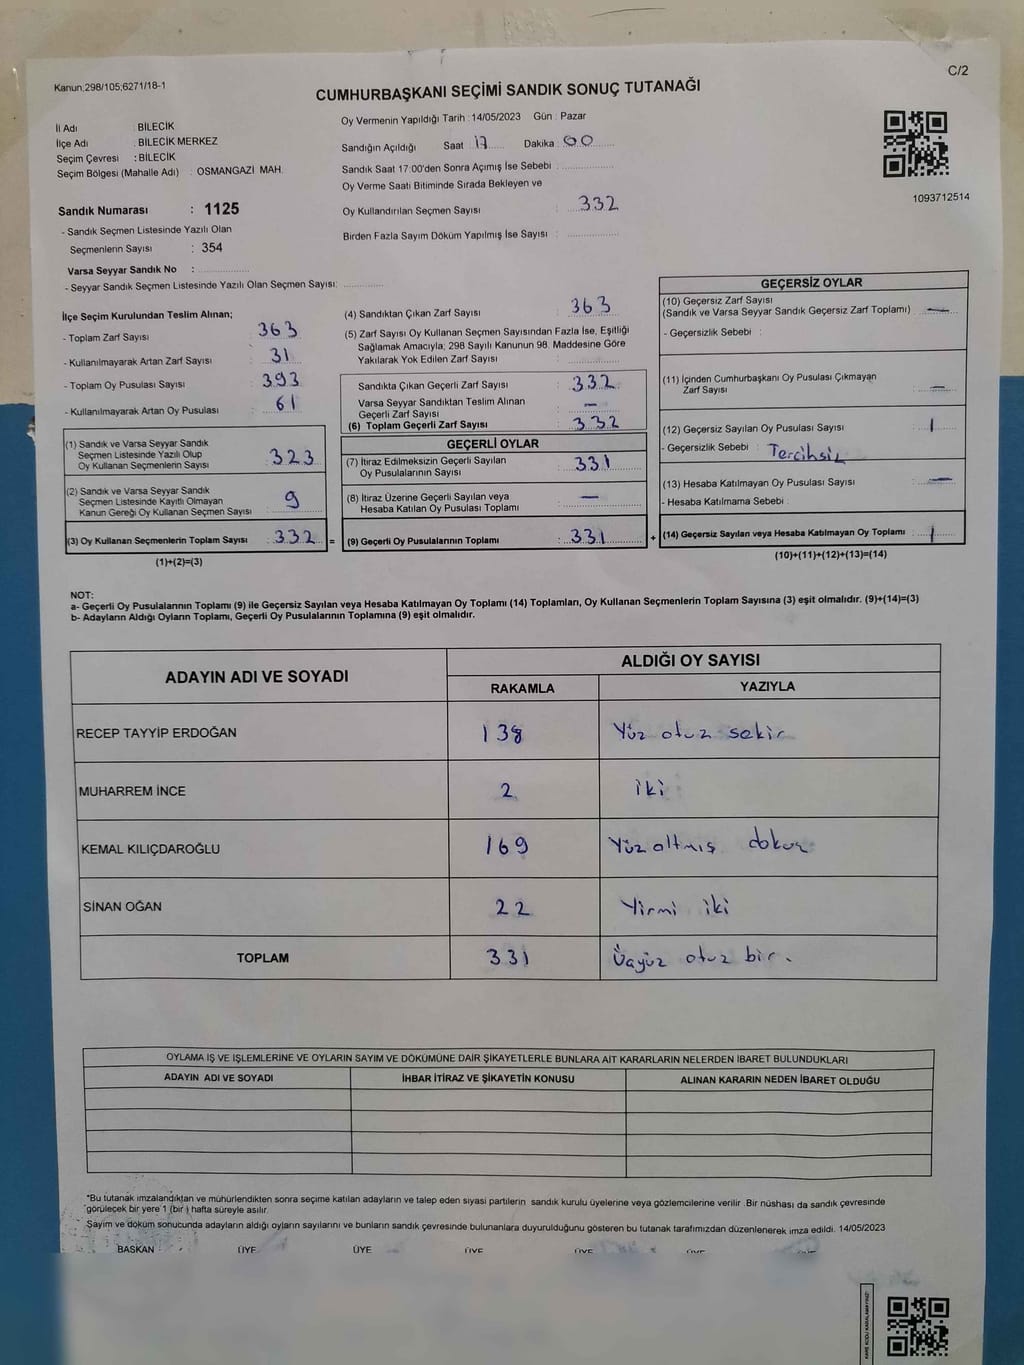 Kanun;298/105;6271/18-1
C/2
CUMHURBAŞKANI SEÇİMİ SANDIK SONUÇ TUTANAĞI
İl Adı : BİLECİK
İlçe Adı : BİLECİK MERKEZ
Seçim Çevresi : BİLECİK
Seçim Bölgesi (Mahalle Adı) : OSMANGAZİ MAH.
Sandık Numarası : 1125
- Sandık Seçmen Listesinde Yazılı Olan
Seçmenlerin Sayısı : 354
Varsa Seyyar Sandık No :
- Seyyar Sandık Seçmen Listesinde Yazılı Olan Seçmen Sayısı:
Oy Vermenin Yapıldığı Tarih : 14/05/2023 Gün : Pazar
Sandığın Açıldığı Saat 17 Dakika 00
Sandık Saat 17:00'den Sonra Açımış İse Sebebi :
Oy Verme Saati Bitiminde Sırada Bekleyen ve
Oy Kullandırılan Seçmen Sayısı : 332
Birden Fazla Sayım Döküm Yapılmış İse Sayısı :
1093712514
İlçe Seçim Kurulundan Teslim Alınan;
- Toplam Zarf Sayısı : 363
- Kullanılmayarak Artan Zarf Sayısı : 31
- Toplam Oy Pusulası Sayısı : 393
- Kullanılmayarak Artan Oy Pusulası : 61
(1) Sandık ve Varsa Seyyar Sandık
Seçmen Listesinde Yazılı Olup
Oy Kullanan Seçmenlerin Sayısı : 323
(2) Sandık ve Varsa Seyyar Sandık
Seçmen Listesinde Kayıtlı Olmayan
Kanun Gereği Oy Kullanan Seçmen Sayısı : 9
(3) Oy Kullanan Seçmenlerin Toplam Sayısı : 332 =
(1)+(2)=(3)
(4) Sandıktan Çıkan Zarf Sayısı : 363
(5) Zarf Sayısı Oy Kullanan Seçmen Sayısından Fazla İse, Eşitliği
Sağlamak Amacıyla; 298 Sayılı Kanunun 98. Maddesine Göre
Yakılarak Yok Edilen Zarf Sayısı :
Sandıkta Çıkan Geçerli Zarf Sayısı : 332
Varsa Seyyar Sandıktan Teslim Alınan
Geçerli Zarf Sayısı : —
(6) Toplam Geçerli Zarf Sayısı : 332
GEÇERLİ OYLAR
(7) İtiraz Edilmeksizin Geçerli Sayılan
Oy Pusulalarının Sayısı : 331
(8) İtiraz Üzerine Geçerli Sayılan veya
Hesaba Katılan Oy Pusulası Toplamı : —
(9) Geçerli Oy Pusulalarının Toplamı : 331 +
GEÇERSİZ OYLAR
(10) Geçersiz Zarf Sayısı
(Sandık ve Varsa Seyyar Sandık Geçersiz Zarf Toplamı) : —
- Geçersizlik Sebebi :
(11) İçinden Cumhurbaşkanı Oy Pusulası Çıkmayan
Zarf Sayısı : —
(12) Geçersiz Sayılan Oy Pusulası Sayısı : 1
- Geçersizlik Sebebi : Tercihsiz
(13) Hesaba Katılmayan Oy Pusulası Sayısı : —
- Hesaba Katılmama Sebebi :
(14) Geçersiz Sayılan veya Hesaba Katılmayan Oy Toplamı : 1
(10)+(11)+(12)+(13)=(14)
NOT:
a- Geçerli Oy Pusulalarının Toplamı (9) ile Geçersiz Sayılan veya Hesaba Katılmayan Oy Toplamı (14) Toplamları, Oy Kullanan Seçmenlerin Toplam Sayısına (3) eşit olmalıdır. (9)+(14)=(3)
b- Adayların Aldığı Oyların Toplamı, Geçerli Oy Pusulalarının Toplamına (9) eşit olmalıdır.
ADAYIN ADI VE SOYADI
ALDIĞI OY SAYISI
RAKAMLA YAZIYLA
RECEP TAYYİP ERDOĞAN 138 Yüz otuz sekiz
MUHARREM İNCE 2 iki
KEMAL KILIÇDAROĞLU 169 Yüz altmış dokuz
SİNAN OĞAN 22 Yirmi iki
TOPLAM 331 Üçyüz otuz bir.
OYLAMA İŞ VE İŞLEMLERİNE VE OYLARIN SAYIM VE DÖKÜMÜNE DAİR ŞİKAYETLERLE BUNLARA AİT KARARLARIN NELERDEN İBARET BULUNDUKLARI
ADAYIN ADI VE SOYADI İHBAR İTİRAZ VE ŞİKAYETİN KONUSU ALINAN KARARIN NEDEN İBARET OLDUĞU
*Bu tutanak imzalandıktan ve mühürlendikten sonra seçime katılan adayların ve talep eden siyasi partilerin sandık kurulu üyelerine veya gözlemcilerine verilir. Bir nüshası da sandık çevresinde
görülecek bir yere 1 (bir) hafta süreyle asılır.
Sayım ve döküm sonucunda adayların aldığı oyların sayılarını ve bunların sandık çevresinde bulunanlara duyurulduğunu gösteren bu tutanak tarafımızdan düzenlenerek imza edildi. 14/05/2023
BAŞKAN ÜYE ÜYE ÜYE ÜYE ÜYE